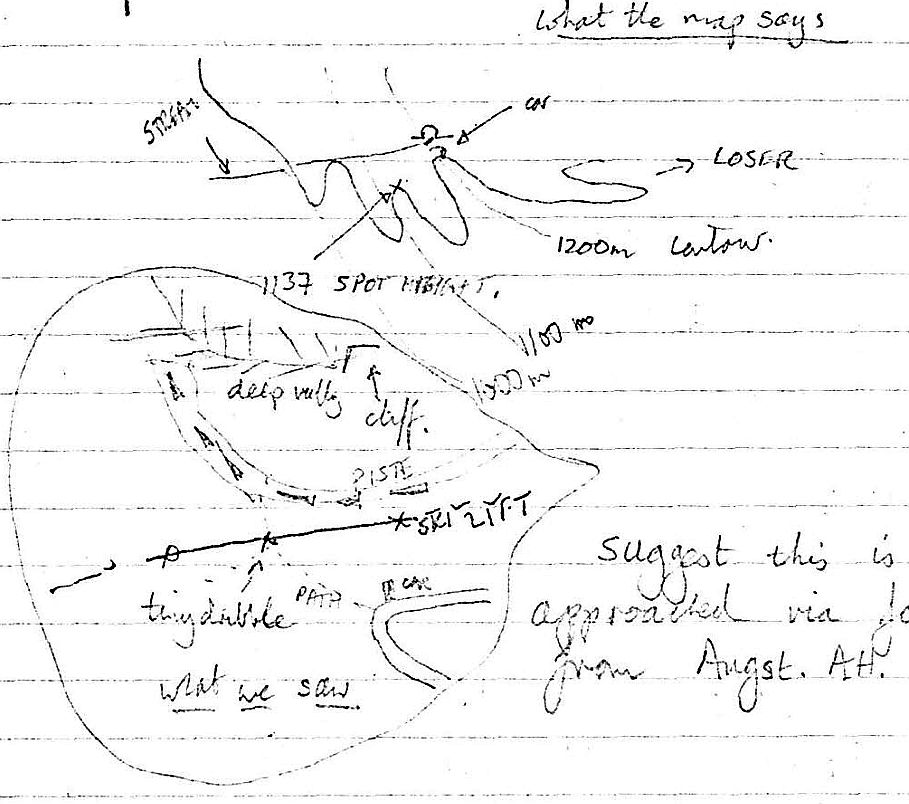 What the map says
STREAM
car
LOSER
1200m contour.
1137 SPOT HEIGHT.
1100 m
1000m
deep valley
cliff.
PISTE
SKI-LIFT
tiny dribble
PATH
CAR
what we saw.
Suggest this is
approached via
from Augst. AH.